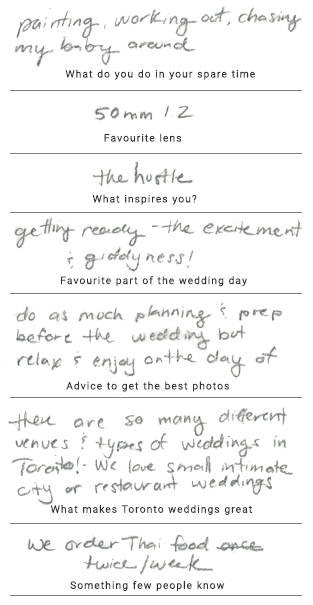 painting, working out, chasing
my baby around
What do you do in your spare time
50mm 1.2
Favourite lens
the hustle
What inspires you?
getting ready - the excitement
& giddyness!
Favourite part of the wedding day
do as much planning & prep
before the wedding but
relax & enjoy on the day of
Advice to get the best photos
there are so many different
venues & types of weddings in
Toronto! - We love small intimate
city or restaurant weddings
What makes Toronto weddings great
We order Thai food once
twice/week
Something few people know